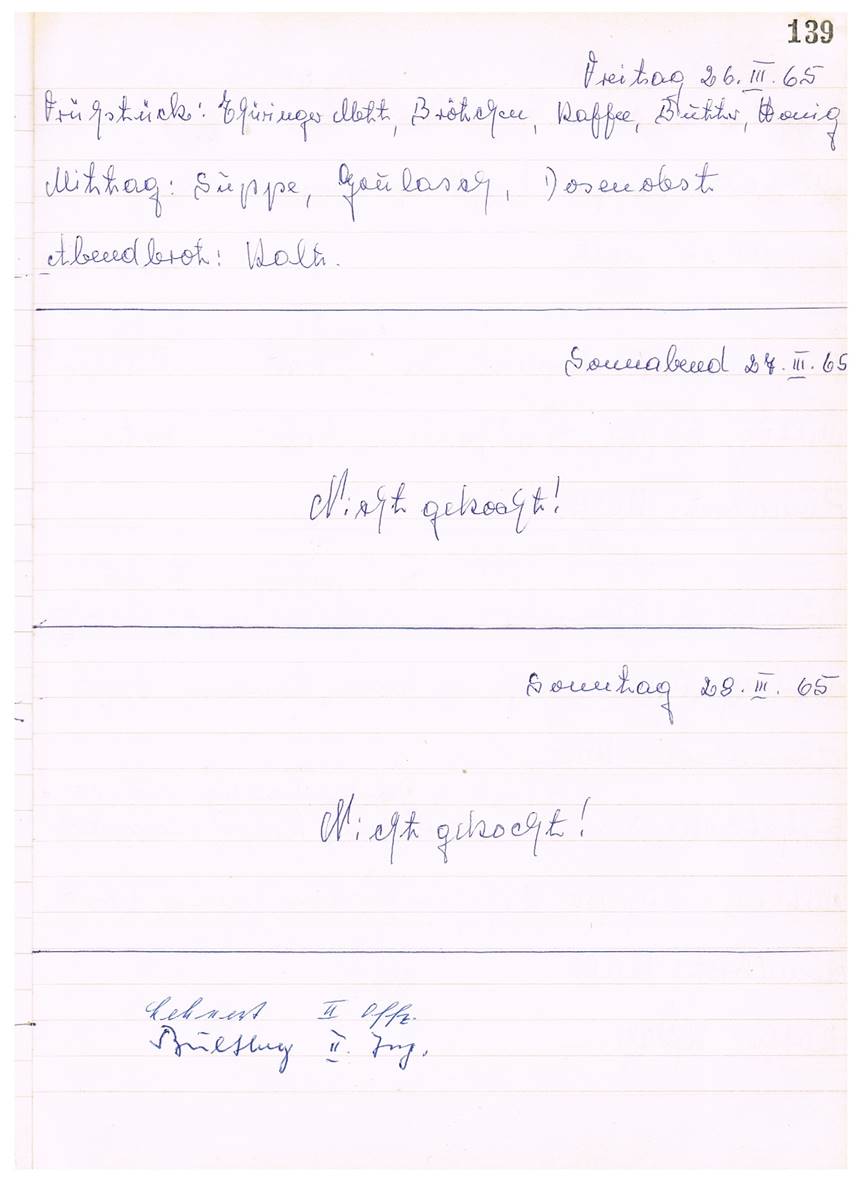 139
Freitag 26. III. 65
Frühstück: Thüringer Mett, Brötchen, Kaffee, Butter, Honig
Mittag: Suppe, Goulasch, Dosenobst
Abendbrot: Kalt.
Sonnabend 27. III. 65
Nicht gekocht!
Sonntag 28. III. 65
Nicht gekocht!
Lehnert II Offz.
II. Ing.